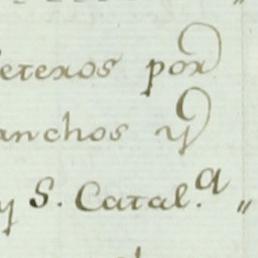 eteros por
anchos y
y S. Catal.a „